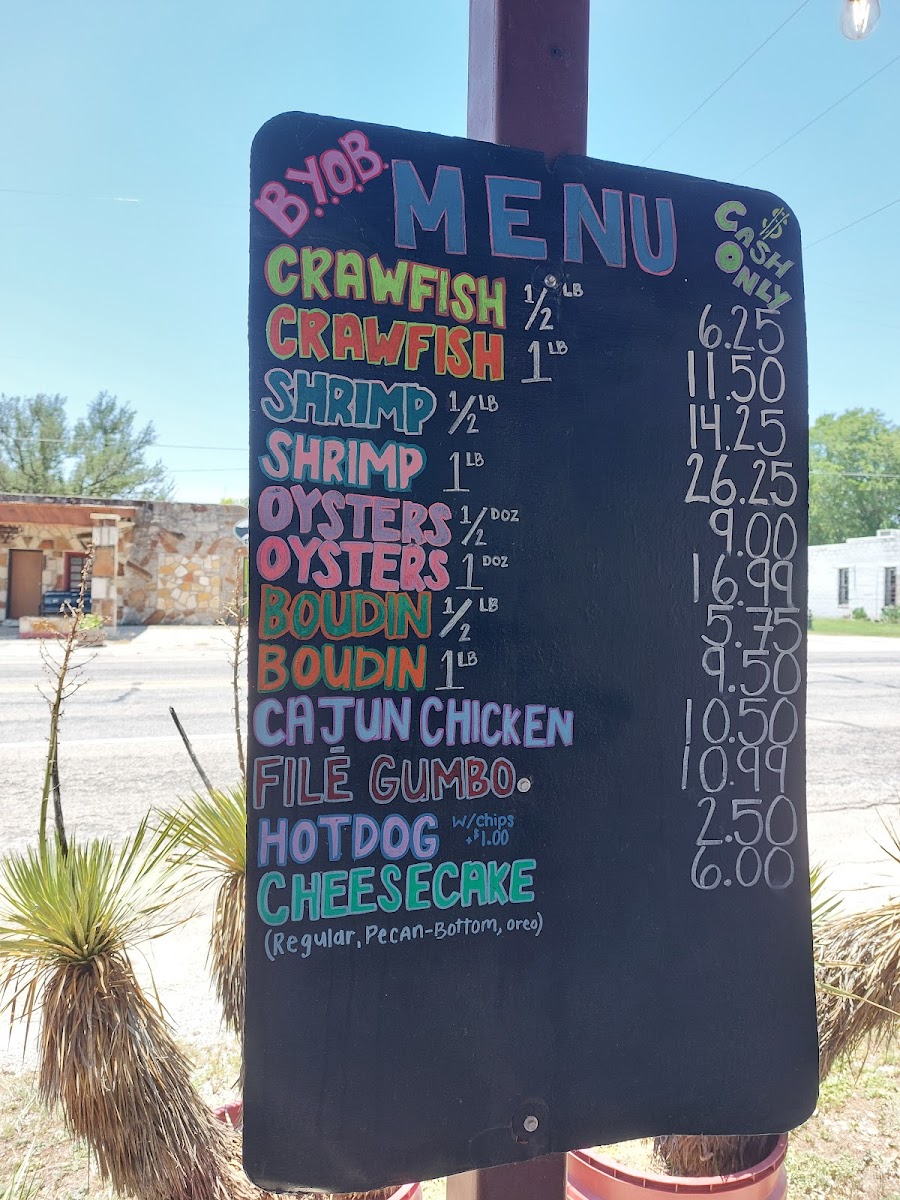 B.Y.O.B. MENU $ CASH ONLY
CRAWFISH 1/2 LB 6.25
CRAWFISH 1 LB 11.50
SHRIMP 1/2 LB 14.25
SHRIMP 1 LB 26.25
OYSTERS 1/2 DOZ 9.00
OYSTERS 1 DOZ 16.99
BOUDIN 1/2 LB 5.75
BOUDIN 1 LB 9.50
CAJUN CHICKEN 10.50
FILĒ GUMBO 10.99
HOTDOG w/chips +$1.00 2.50
CHEESECAKE 6.00
(Regular, Pecan-Bottom, oreo)